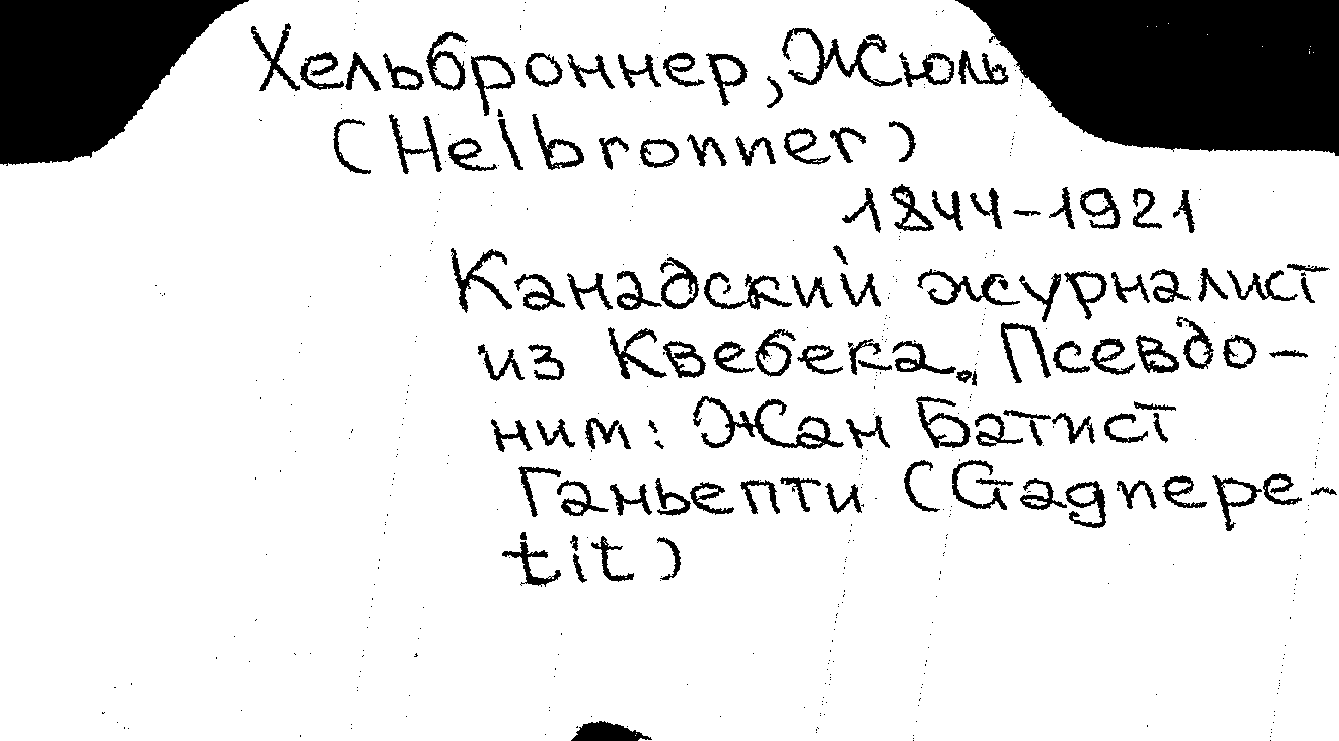 Хельброннер, Жюль
(Helbronner)
1844-1921
Канадский журналист
из Квебека. Псевдо-
ним: Жан Батист
Ганьепти (Gagnepe-
tit)